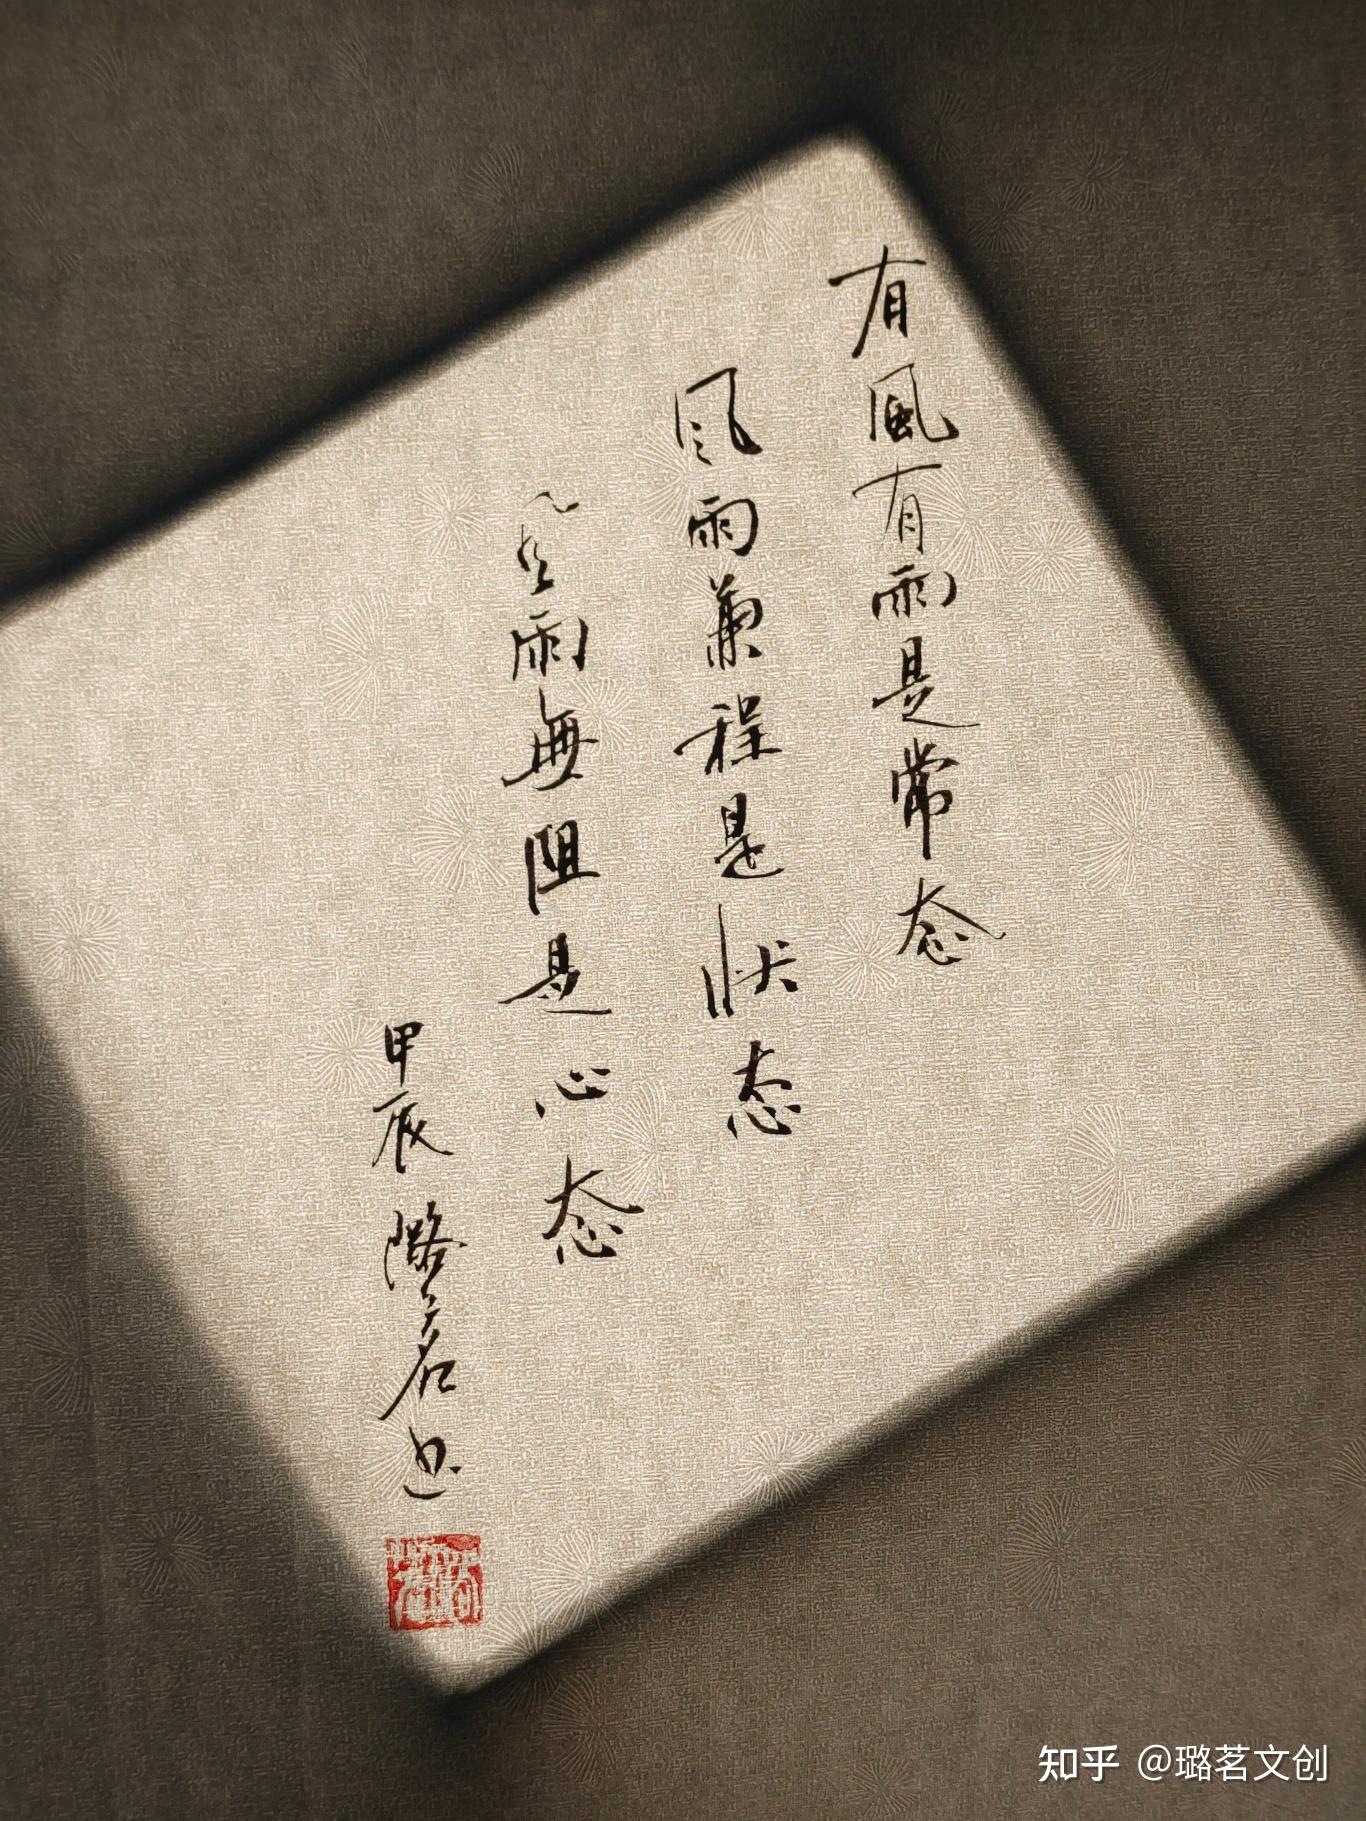 有風有雨是常态
风雨兼程是状态
風雨無阻是心态
甲辰 璐茗书
知乎 @璐茗文创